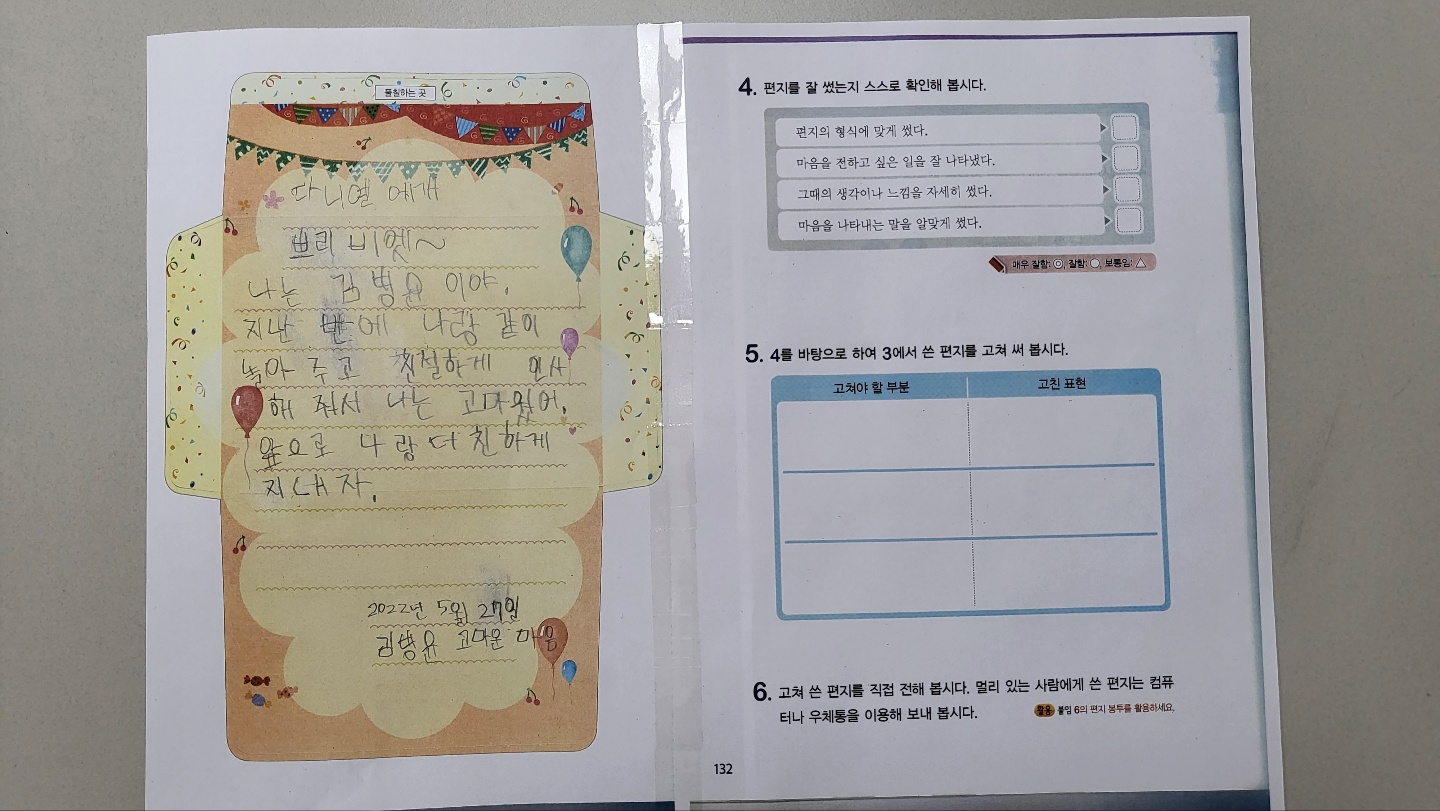 풀칠하는 곳
다니엘 에게
쁘리비엣~
나는 김병윤 이야.
지난 반에 나랑 같이
놀아 주고 친절하게 인사
해 줘서 나는 고마웠어.
앞으로 나랑 더 친하게
지내자.
2022년 5월 27일
김병윤 고마운 마음
4. 편지를 잘 썼는지 스스로 확인해 봅시다.
편지의 형식에 맞게 썼다.
마음을 전하고 싶은 일을 잘 나타냈다.
그때의 생각이나 느낌을 자세히 썼다.
마음을 나타내는 말을 알맞게 썼다.
매우 잘함: ◎, 잘함: ○, 보통임: △
5. 4를 바탕으로 하여 3에서 쓴 편지를 고쳐 써 봅시다.
고쳐야 할 부분 고친 표현
6. 고쳐 쓴 편지를 직접 전해 봅시다. 멀리 있는 사람에게 쓴 편지는 컴퓨
터나 우체통을 이용해 보내 봅시다.
활용 붙임 6의 편지 봉투를 활용하세요.
132